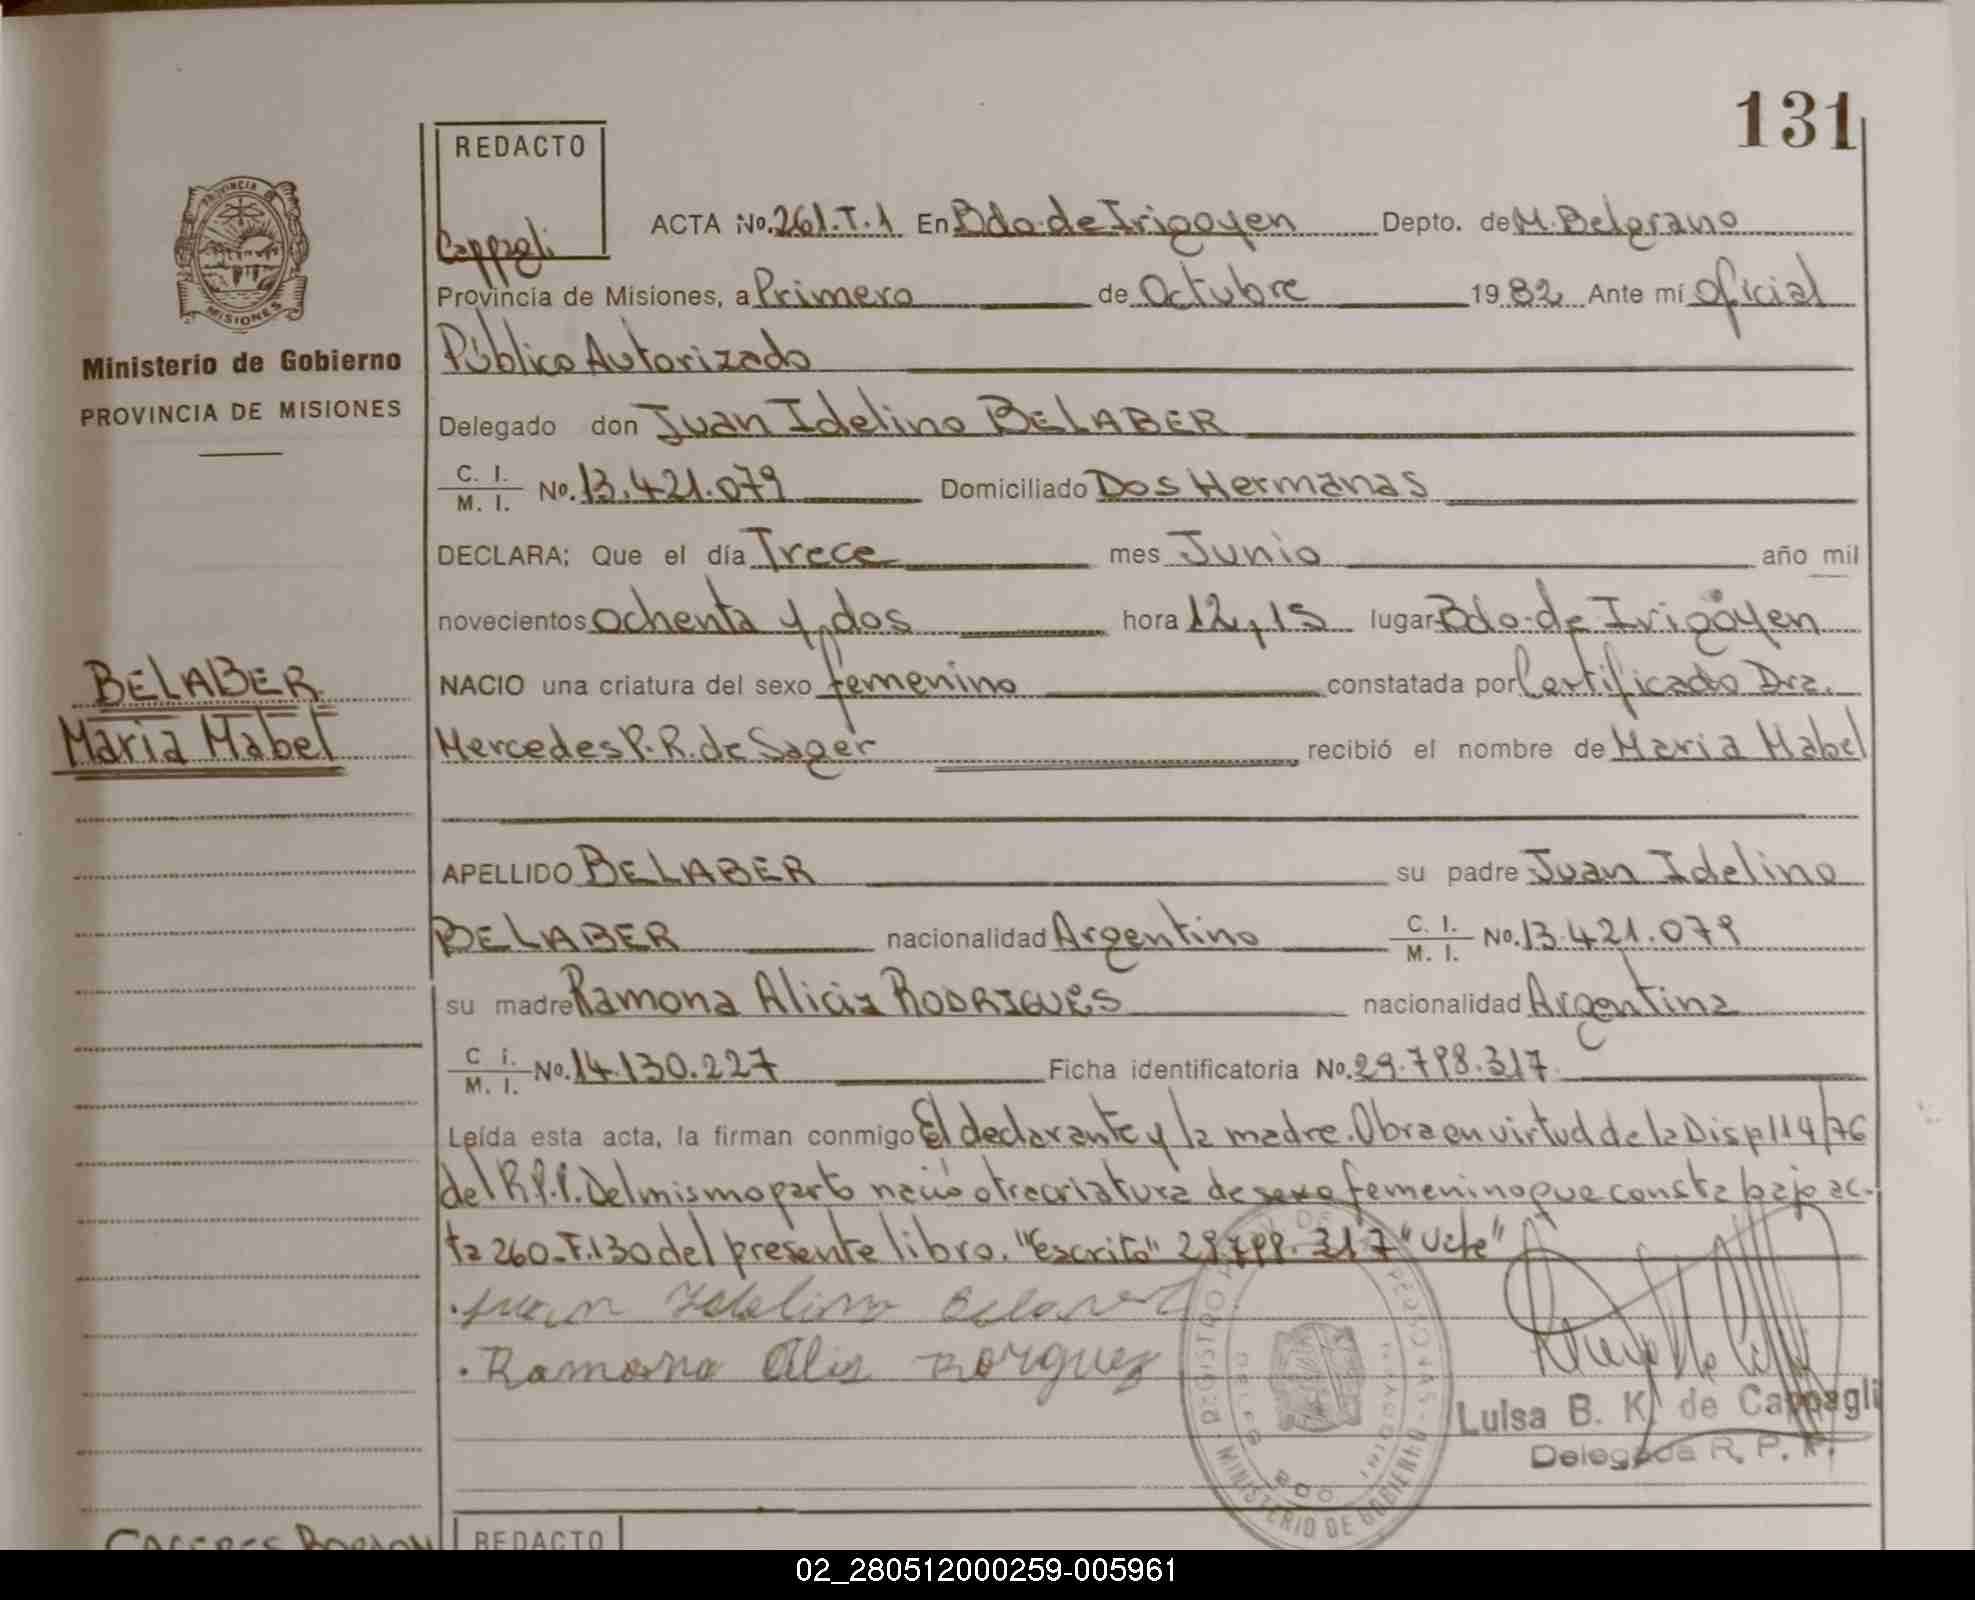 131
REDACTO
Cappagli
ACTA No. 261.T.1 En Bdo. de Irigoyen Depto. de M. Belgrano
Provincia de Misiones, a Primero de Octubre 1982 Ante mí Oficial
Público Autorizado
PROVINCIA
MISIONES
Ministerio de Gobierno
PROVINCIA DE MISIONES
Delegado don Juan Idelino BELABER
C. I. M. I. No. 13.421.079 Domiciliado Dos Hermanas
DECLARA; Que el día Trece mes Junio año mil
novecientos ochenta y dos hora 12,15 lugar Bdo. de Irigoyen
BELABER
Maria Mabel
NACIO una criatura del sexo femenino constatada por Certificado Dra.
Mercedes P. R. de Sager recibió el nombre de Maria Mabel
APELLIDO BELABER su padre Juan Idelino
BELABER nacionalidad Argentino C. I. M. I. No. 13.421.079
su madre Ramona Alicia RODRIGUES nacionalidad Argentina
C. i. M. I. No. 14.130.227 Ficha identificatoria No. 29.798.317
Leída esta acta, la firman conmigo El declarante y la madre. Obra en virtud de la Disp 114/76
del R.P.P. Del mismo parto nació otra criatura de sexo femenino que consta bajo ac-
ta 260-F.130 del presente libro. "Escrito" 29.798.317 "Vale"
Juan Idelino Belaver
Ramona Alis Rorguez
Luisa B. K. de Cappagli
Delegada R. P. P.
MINISTERIO DE GOBIERNO
REDACTO
02_280512000259-005961